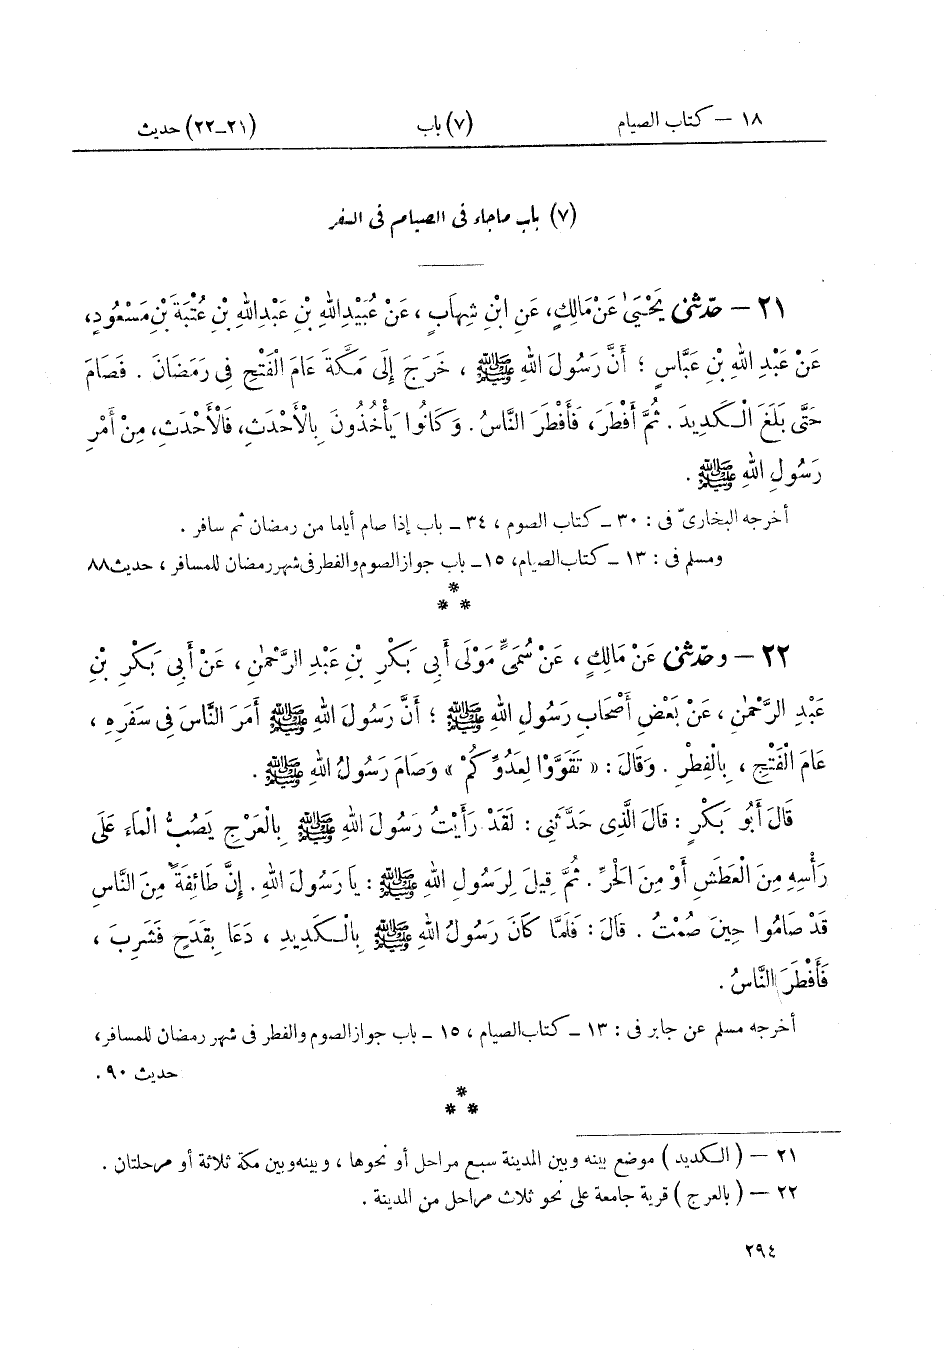 ١٨ – كتاب الصيام (٧) باب (٢١-٢٢) حديث
(٧) باب ماجاء فى الصيام فى السفر
٢١ – حدّثنى يَحْيَىٰ عَنْ مَالِكٍ، عَنِ ابْنِ شِهَابٍ، عَنْ عُبَيْدِ اللهِ بْنِ عَبْدِ اللهِ بْنِ عُتْبَةَ بْنِ مَسْعُودٍ،
عَنْ عَبْدِ اللهِ بْنِ عَبَّاسٍ؛ أَنَّ رَسُولَ اللهِ ﷺ، خَرَجَ إِلَى مَكَّةَ عَامَ الْفَتْحِ فِى رَمَضَانَ. فَصَامَ
حَتَّى بَلَغَ الْكَدِيدَ. ثُمَّ أَفْطَرَ، فَأَفْطَرَ النَّاسُ. وَكَانُوا يَأْخُذُونَ بِالْأَحْدَثِ، فَالْأَحْدَثِ، مِنْ أَمْرِ
رَسُولِ اللهِ ﷺ.
أخرجه البخارىّ فى: ٣٠ – كتاب الصوم، ٣٤ – باب إذا صام أياما من رمضان ثم سافر.
ومسلم فى: ١٣ – كتاب الصيام، ١٥ – باب جواز الصوم والفطر فى شهر رمضان للمسافر، حديث ٨٨
*
* *
٢٢ – وحدّثنى عَنْ مَالِكٍ، عَنْ سُمَىٍّ مَوْلَى أَبِى بَكْرِ بْنِ عَبْدِ الرَّحْمٰنِ، عَنْ أَبِى بَكْرِ بْنِ
عَبْدِ الرَّحْمٰنِ، عَنْ بَعْضِ أَصْحَابِ رَسُولِ اللهِ ﷺ؛ أَنَّ رَسُولَ اللهِ ﷺ أَمَرَ النَّاسَ فِى سَفَرِهِ،
عَامَ الْفَتْحِ، بِالْفِطْرِ. وَقَالَ: «تَقَوَّوْا لِعَدُوِّكُمْ» وَصَامَ رَسُولُ اللهِ ﷺ.
قَالَ أَبُو بَكْرٍ: قَالَ الَّذِى حَدَّثَنِى: لَقَدْ رَأَيْتُ رَسُولَ اللهِ ﷺ بِالْعَرْجِ يَصُبُّ الْمَاءَ عَلَى
رَأْسِهِ مِنَ الْعَطَشِ أَوْ مِنَ الْحَرِّ. ثُمَّ قِيلَ لِرَسُولِ اللهِ ﷺ: يَا رَسُولَ اللهِ. إِنَّ طَائِفَةً مِنَ النَّاسِ
قَدْ صَامُوا حِينَ صُمْتُ. قَالَ: فَلَمَّا كَانَ رَسُولُ اللهِ ﷺ بِالْكَدِيدِ، دَعَا بِقَدَحٍ فَشَرِبَ،
فَأَفْطَرَ النَّاسُ.
أخرجه مسلم عن جابر فى: ١٣ – كتاب الصيام، ١٥ – باب جواز الصوم والفطر فى شهر رمضان للمسافر،
حديث ٩٠.
*
* *
٢١ – (الكديد) موضع بينه وبين المدينة سبع مراحل أو نحوها، وبينه وبين مكة ثلاثة أو مرحلتان.
٢٢ – (بالعرج) قرية جامعة على نحو ثلاث مراحل من المدينة.
٢٩٤